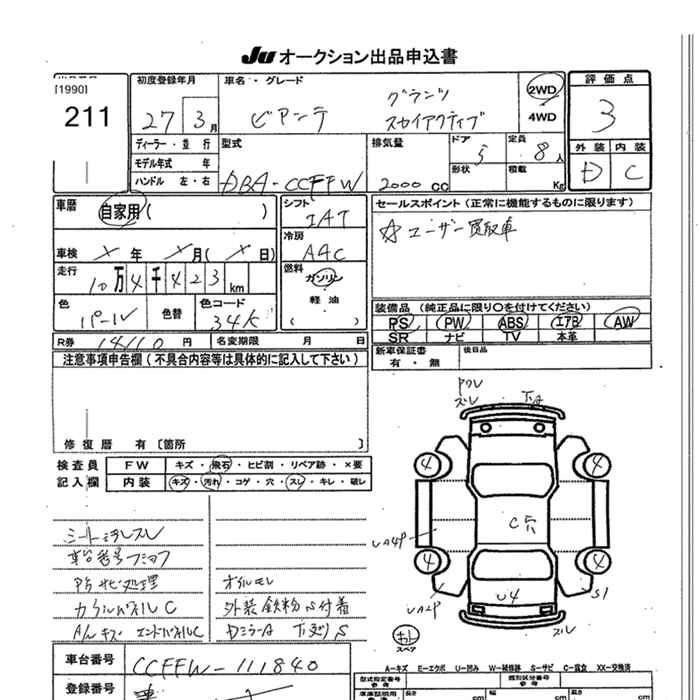 JU オークション出品申込書
[1990]
211
初度登録年月
27 3月
車名・グレード
ビアンテ グランツ
スカイアクティブ
2WD
4WD
評価点
3
外装 内装
D C
ディーラー・並行
モデル年式 年
ハンドル 左・右
型式
DBA-CCFFW
排気量
2000 cc
ドア
5
形状
定員
8人
積載
Kg
車歴
自家用( )
車検 × 年 × 月( × 日)
走行 10万4千423km
色
パール
色替
色コード
34K
シフト
IAT
冷房
AAC
燃料
ガソリン
軽油
( )
セールスポイント(正常に機能するものに限ります)
☆ユーザー買取車
装備品 (純正品に限り〇を付けてください)
PS PW ABS エアB AW
SR ナビ TV 本革
R券 14110円
名変期限 月 日
新車保証書
有・無
後日品
注意事項申告欄(不具合内容等は具体的に記入して下さい)
修復歴 有〔箇所 〕
検査員
記入欄
FW キズ・飛石・ヒビ割・リペア跡・×要
内装 キズ・汚れ・コゲ・穴・スレ・キレ・破レ
シートシミスレ
車台番号
下サビ処理
カウルパネルC
A/Wキズ エンドパネルC
オイルモレ
外装鉄粉付着
DミラーA 下廻りS
スレ
下A
4
4
4
4
C穴
U4
S1
スレ
スペア
車台番号
CCFFW-111840
登録番号
A-キズ E-エクボ U-凹み W-補修跡 S-サビ C-腐食 XX-交換済
型式指定番号
類別区分番号
長さ cm
幅 cm
高さ cm